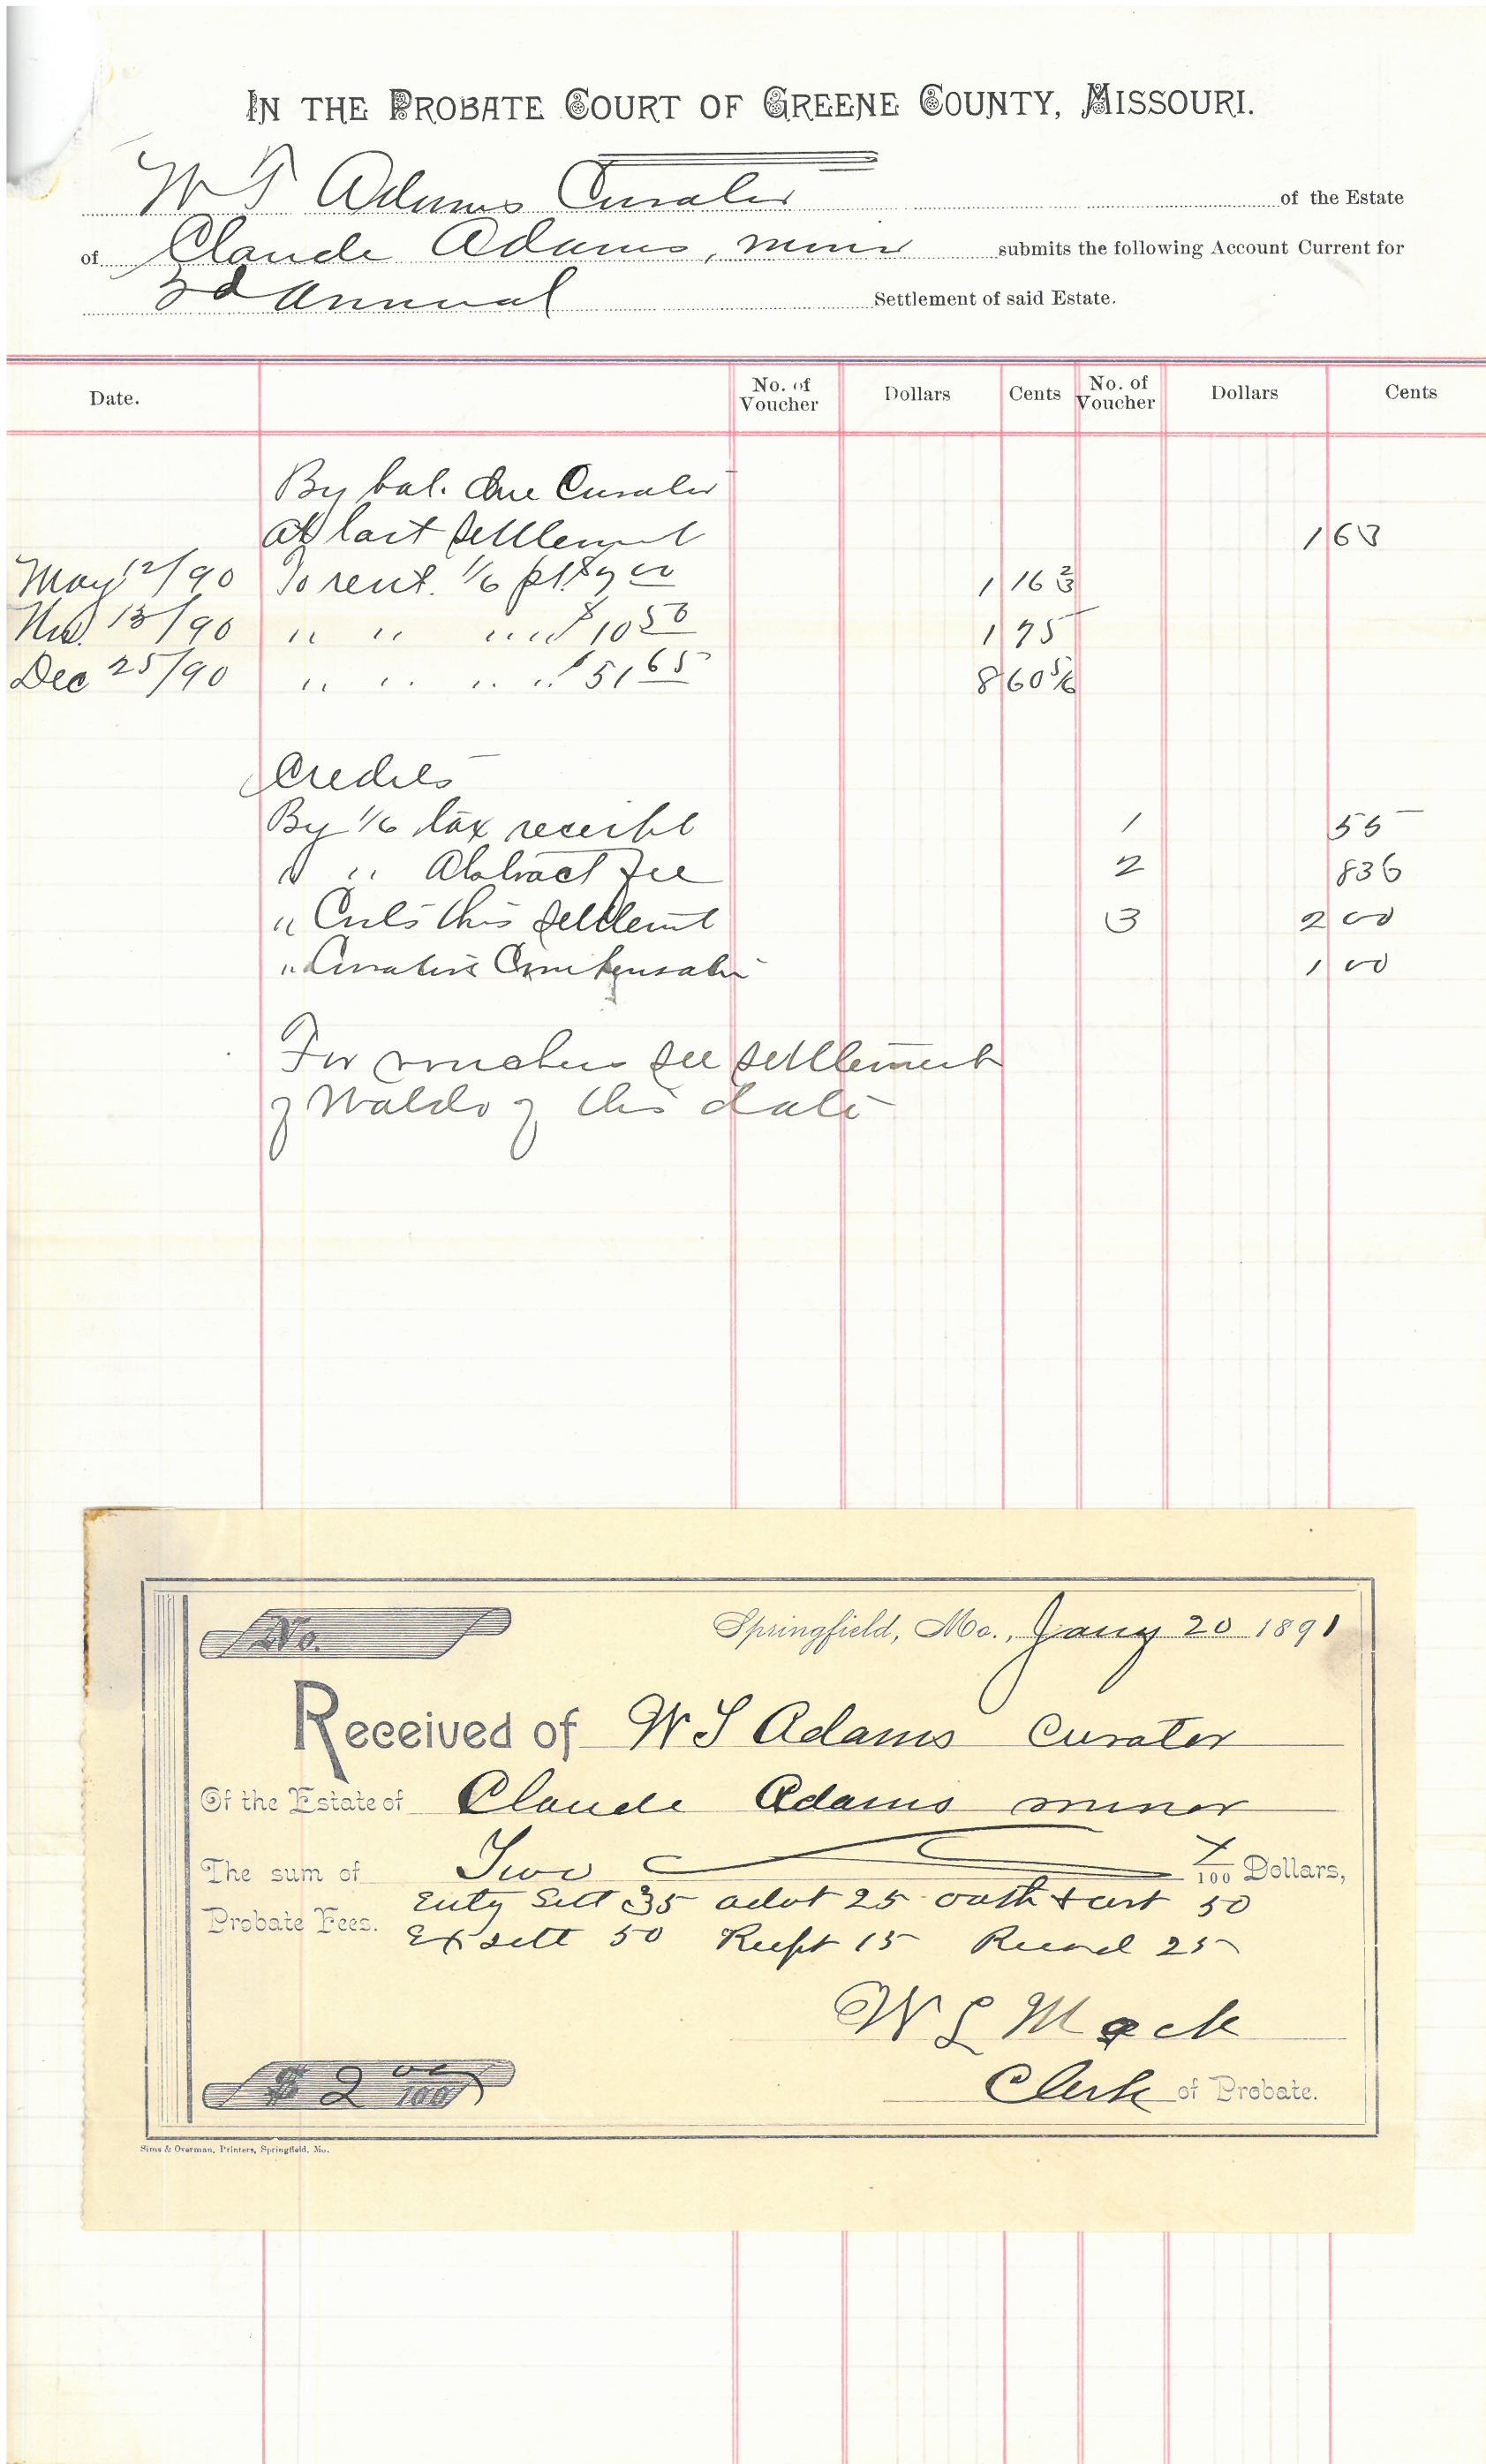 IN THE PROBATE COURT OF GREENE COUNTY, MISSOURI.
W S Adams Curator of the Estate
of Claude Adams, minor submits the following Account Current for
3d Annual Settlement of said Estate.
Date. No. of Voucher Dollars Cents No. of Voucher Dollars Cents
By bal. due Curator
at last settlement 1 63
May 12/90 To rent. 1/6 pt. $7 00 1 16 2/3
Nov. 13/90 " " " " $10 50 1 75
Dec 25/90 " " " " $51 65 8 60 5/6
Credits
By 1/6 tax receipt 1 55
" " Abstract fee 2 83 6
" Costs this settlemt 3 2 00
" Curators Compensation 1 00
For vouchers see settlement
of Waldo of this date
No. Springfield, Mo., Jany 20 1891
Received of W S Adams Curator
Of the Estate of Claude Adams minor
The sum of Two /100 Dollars,
Probate Fees. Enty Sett 35 advt 25 oath & cert 50
Ex sett 50 Recpt 15 Record 25
W L Mack
$ 2 00/100 Clerk of Probate.
Sims & Overman, Printers, Springfield, Mo.